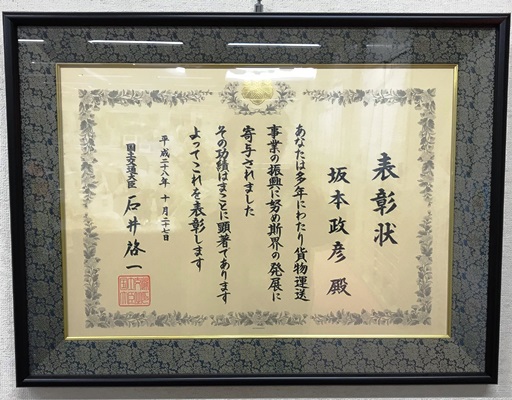 表彰状
坂本政彦 殿
あなたは多年にわたり貨物運送
事業の振興に努め斯界の発展に
寄与されました
その功績はまことに顕著であります
よってこれを表彰します
平成二十八年 十月二十七日
国土交通大臣 石井啓一